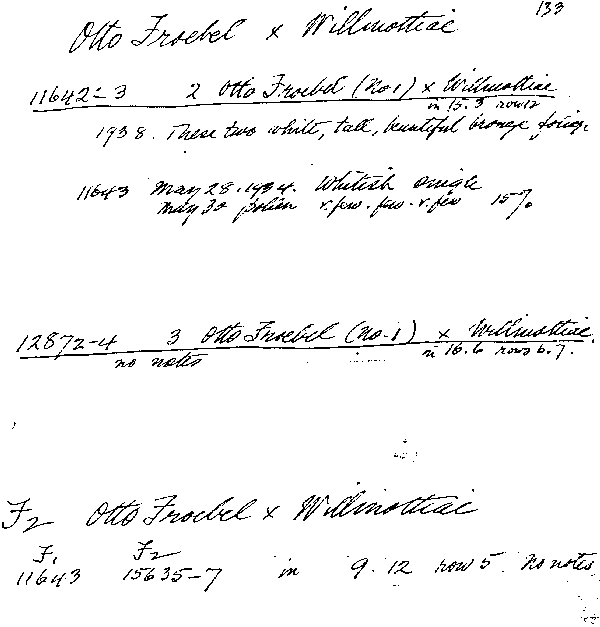 133
Otto Froebel x Willmottiae
11642-3 2 Otto Froebel (No 1) x Willmottiae
in 15.3 row 12
1938. These two white, tall, beautiful bronze foliage.
11643 May 28.1934. Whitish single
May 30 pollen v. few. few. v. few 15%
12872-4 3 Otto Froebel (No. 1) x Willmottiae.
no notes in 16.6 rows 6.7.
F2 Otto Froebel x Willmottiae
F1 F2
11643 15635-7 in 9.12 row 5 No notes